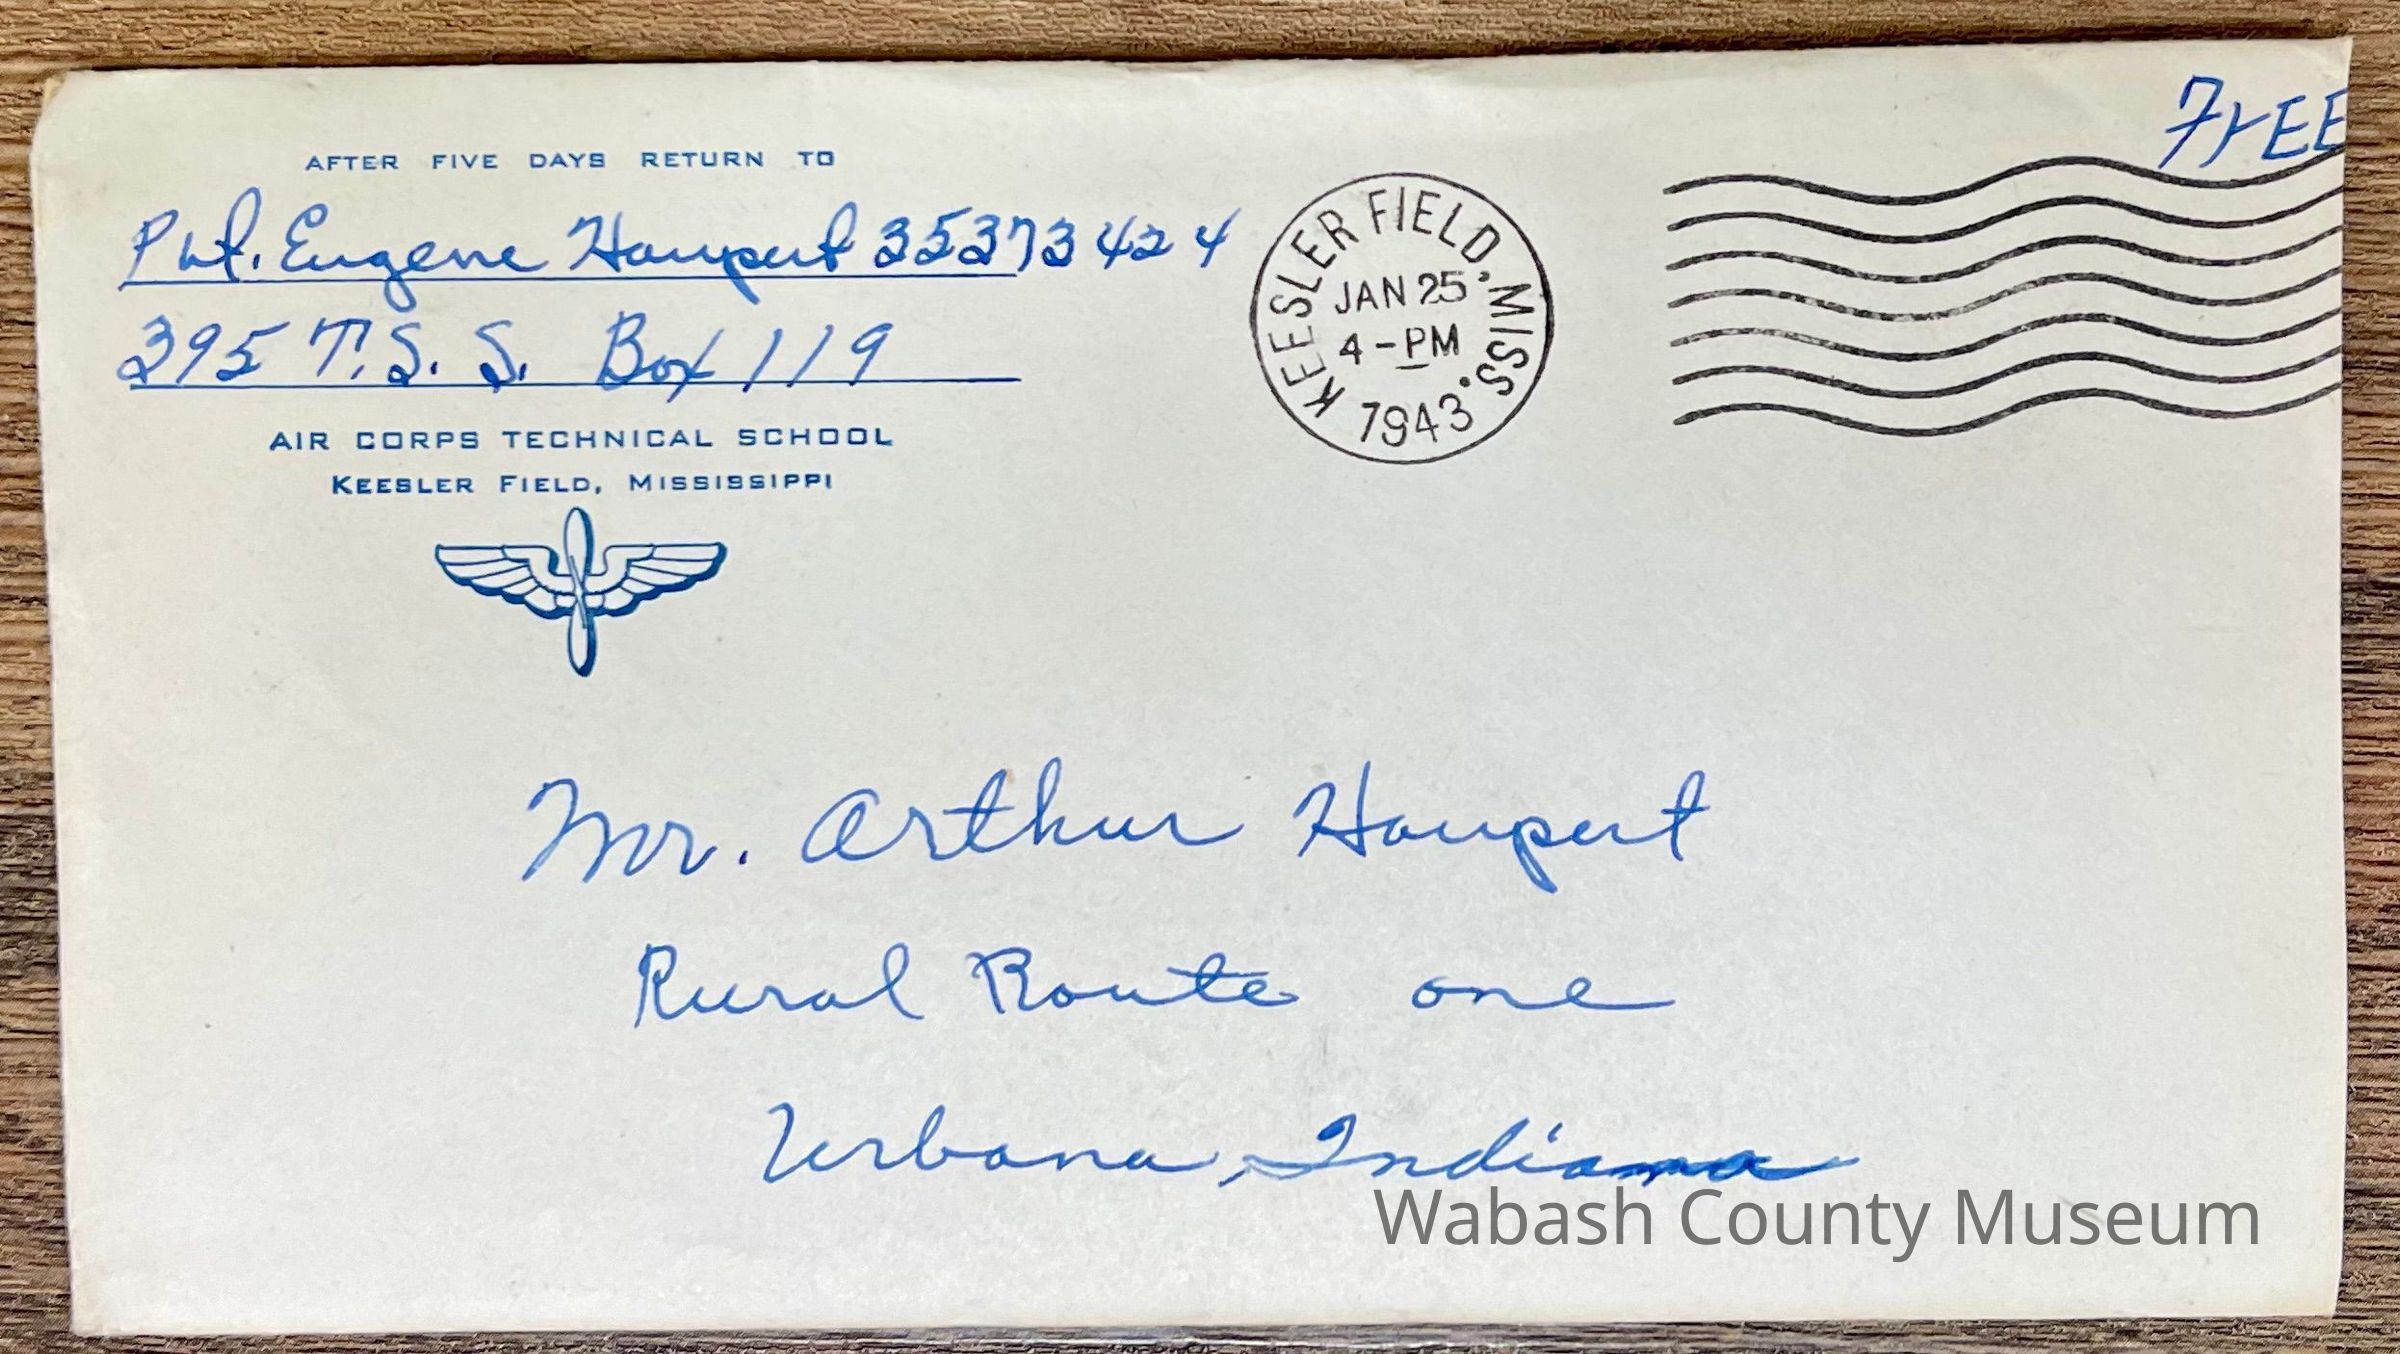 FrEE
AFTER FIVE DAYS RETURN TO
Pvt. Eugene Haupert 35373424
395 T.S.S. Box 119
AIR CORPS TECHNICAL SCHOOL
KEESLER FIELD, MISSISSIPPI
KEESLER FIELD, MISS.
JAN 25
4-PM
1943
Mr. Arthur Haupert
Rural Route one
Urbana, Indiana
Wabash County Museum